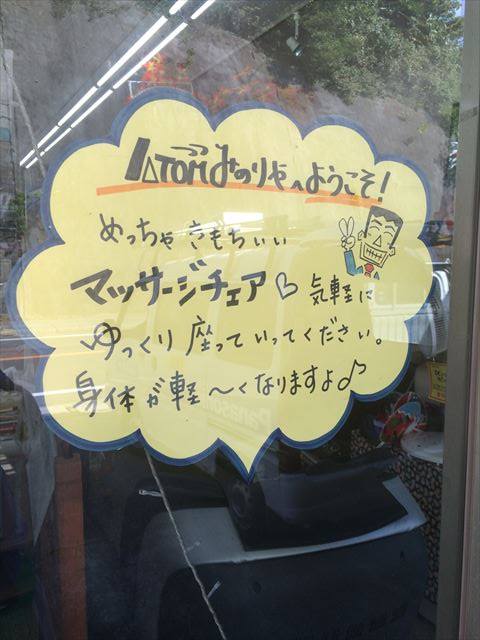 ATOMみのりやへようこそ!
めっちゃきもちぃぃ
マッサージチェア♡気軽に
ゆっくり座っていってください。
身体が軽〜くなりますよ♪
Panaso